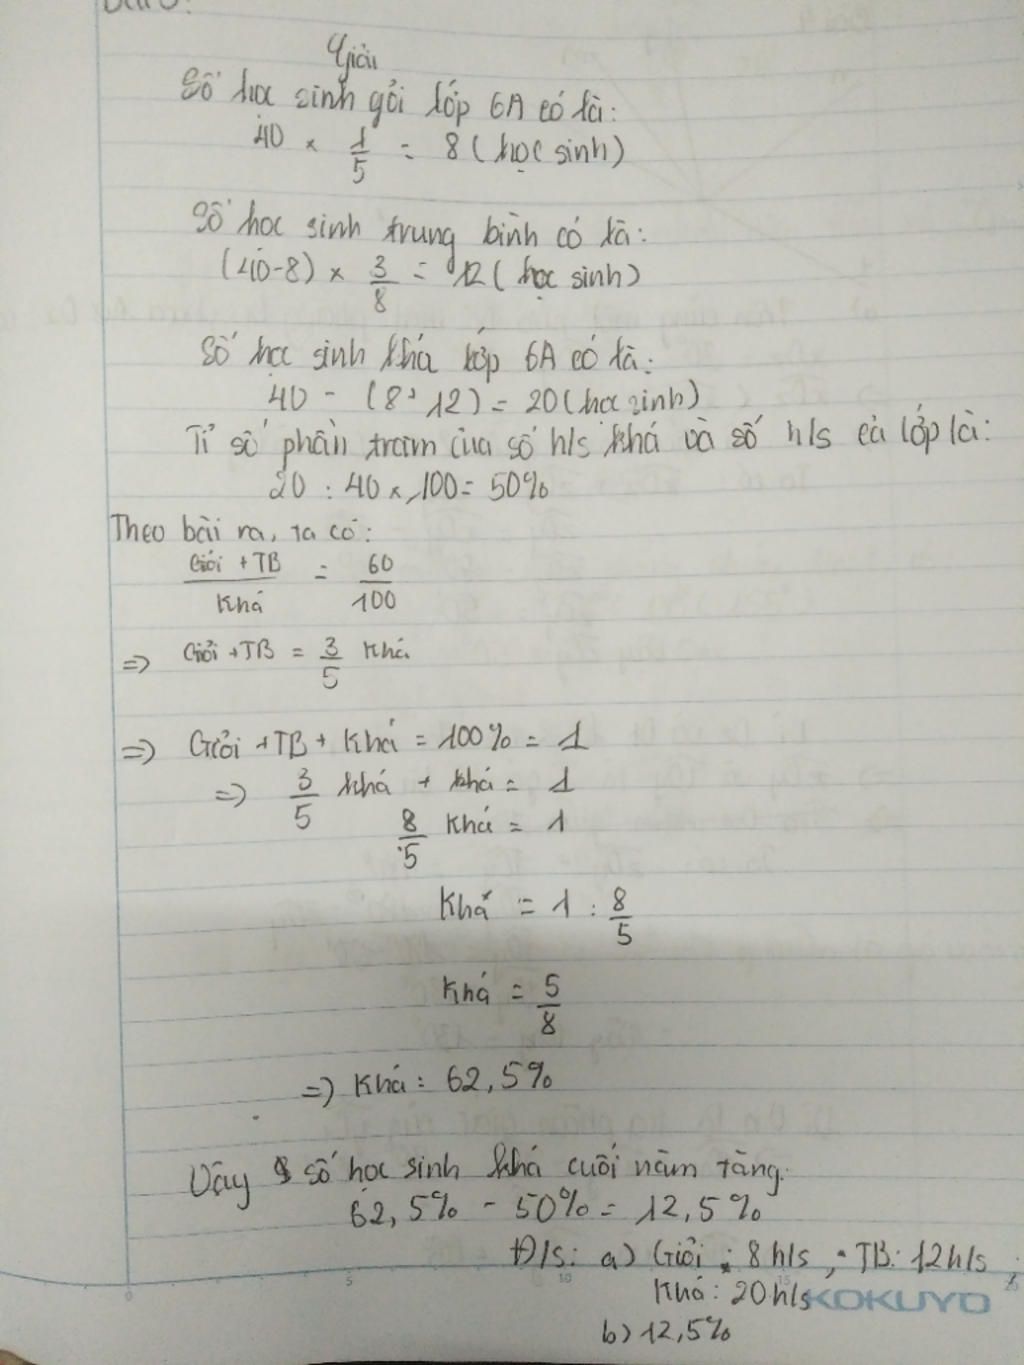 Giải
Số học sinh gỏi lớp 6A có là:
40 × 1/5 = 8 (học sinh)
Số học sinh trung bình có là:
(40-8) × 3/8 = 12 (học sinh)
Số học sinh khá lớp 6A có là:
40 - (8+12) = 20 (học sinh)
Tỉ số phần trăm của số h/s khá và số h/s cả lớp là:
20 : 40 × 100 = 50%
Theo bài ra, ta có:
Giỏi + TB / Khá = 60/100
=> Giỏi + TB = 3/5 Khá
=> Giỏi + TB + Khá = 100% = 1
=> 3/5 khá + khá = 1
8/5 Khá = 1
Khá = 1 : 8/5
Khá = 5/8
=> Khá: 62,5%
Vậy số học sinh khá cuối năm tăng:
62,5% - 50% = 12,5%
Đ/s: a) Giỏi: 8 h/s, TB: 12 h/s,
Khá: 20 h/s
KOKUYO
b) 12,5%
0 5 10 15 20